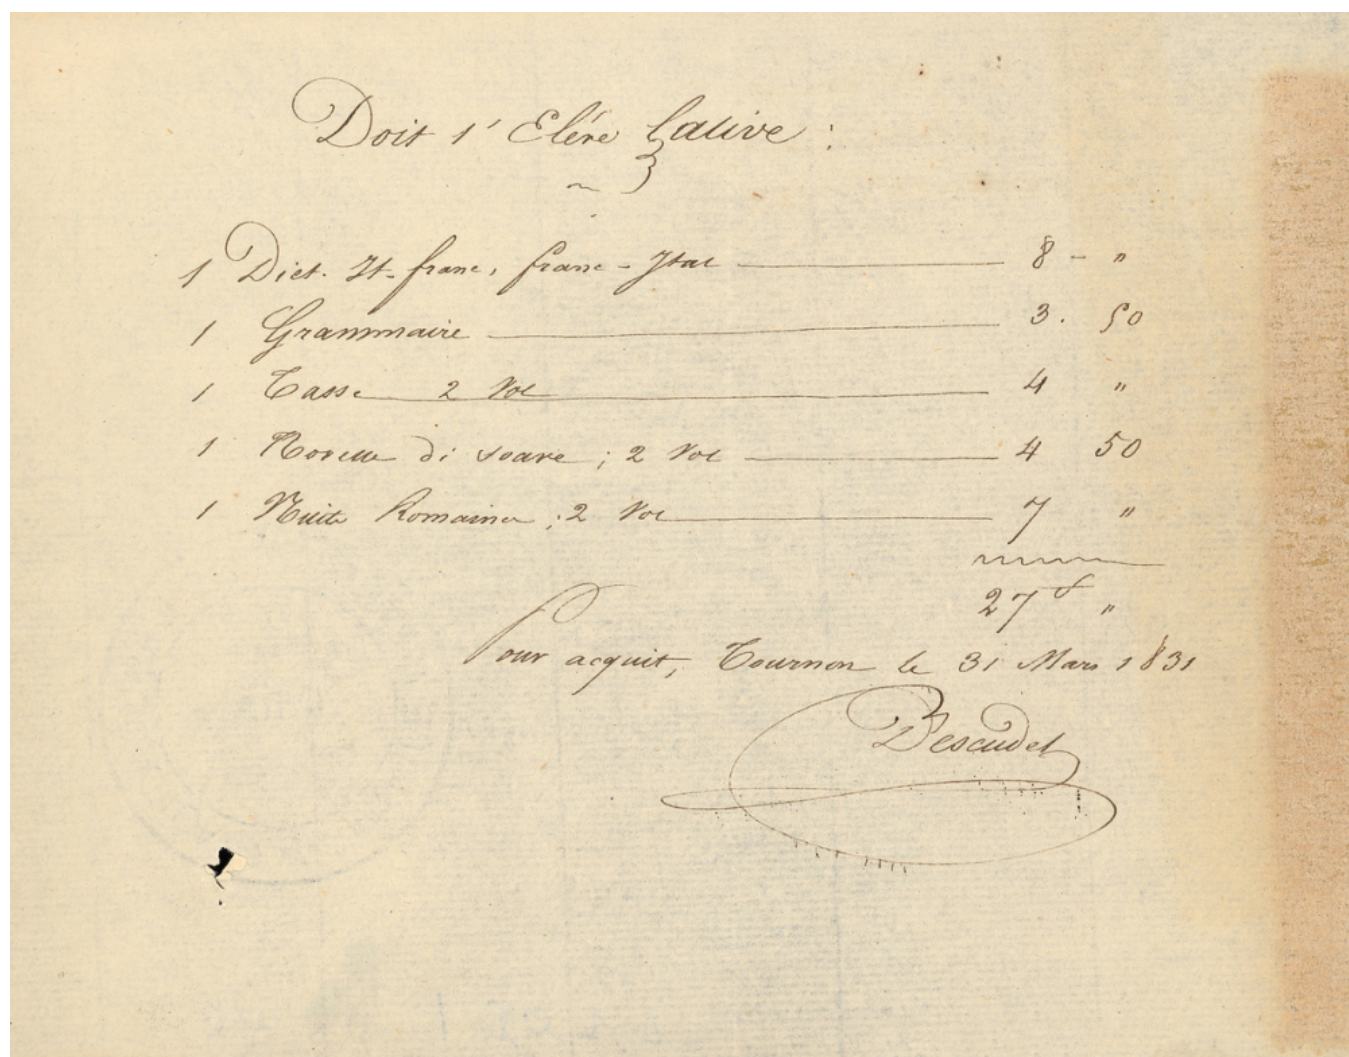 Doit l'Elève Lalive :
1 Dict. It-franc, franc-Ital 8 - "
1 Grammaire 3. 50
1 Tasse 2 Vol 4 "
1 Novelle di soave ; 2 Vol 4 50
1 Nuits Romaines ; 2 Vol 7 "
27 f "
Pour acquit, Tournon le 31 Mars 1831
Descudet